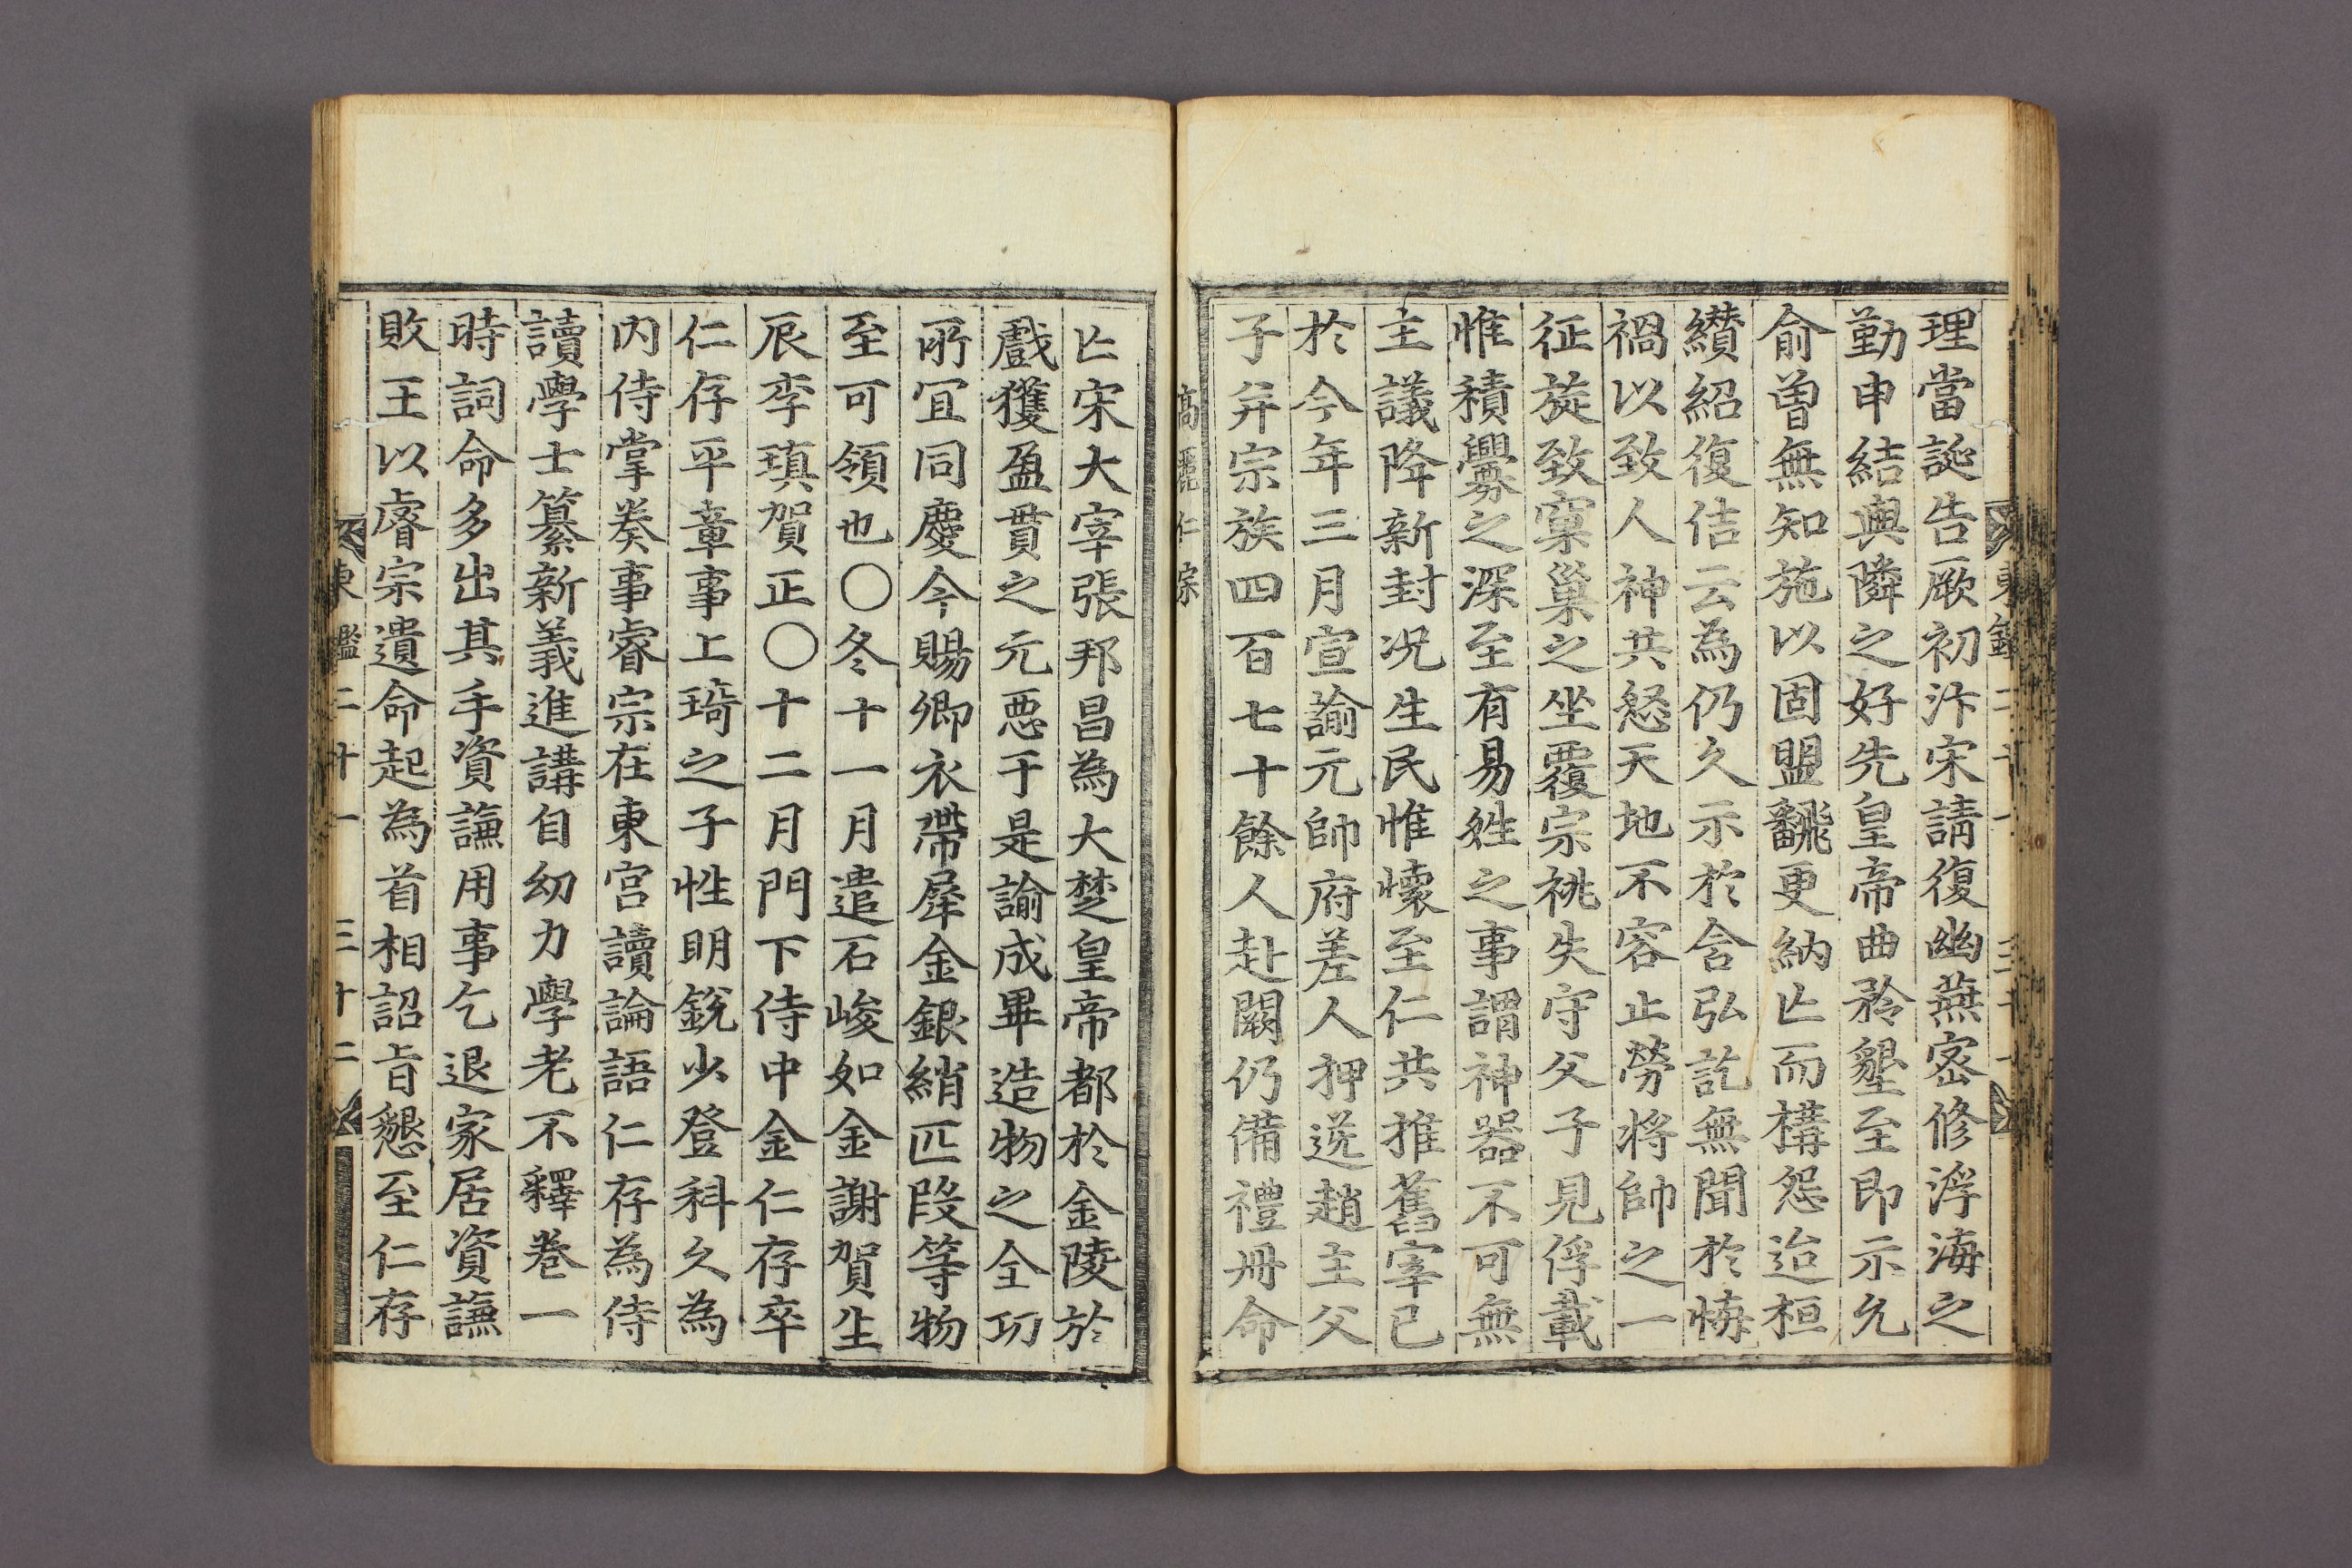 理當誕告厥初汴宋請復幽燕密修浮海之
勤申結與隣之好先皇帝曲矜墾至即示允
俞曾無知施以固盟飜更納亡而構怨迨桓
纘紹復佶云為仍久示於含弘訖無聞於悔
禍以致人神共怒天地不容止勞將帥之一
征旋致窠巢之坐覆宗祧失守父子見俘載
惟積釁之深至有易姓之事謂神器不可無
主議降新封況生民惟懷至仁共推舊宰已
於今年三月宣諭元帥府差人押送趙主父
子并宗族四百七十餘人赴闕仍備禮冊命
高麗仁宗
亡宋大宰張邦昌為大楚皇帝都於金陵於
戲獲盈貫之元惡于是諭成畢造物之全功
所宜同慶今賜卿衣帶犀金銀綃匹段等物
至可領也〇冬十一月遣石峻如金謝賀生
辰李瑱賀正〇十二月門下侍中金仁存卒
仁存平章事上琦之子性明銳少登科久為
內侍掌奏事睿宗在東宮讀論語仁存為侍
讀學士纂新義進講自幼力學老不釋卷一
時詞命多出其手資謙用事乞退家居資謙
敗王以睿宗遺命起為首相詔旨懇至仁存
東鑑二十一 三十二